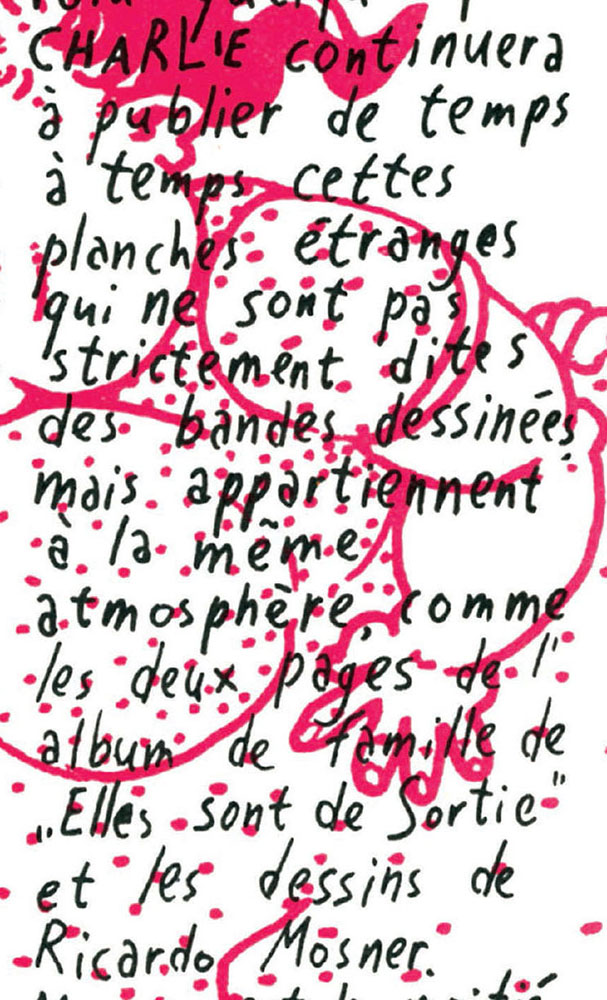 CHARLIE continuera
à publier de temps
à temps cettes
planches étranges
qui ne sont pas
strictement dites
des bandes dessinées
mais appartiennent
à la même
atmosphère, comme
les deux pages de l'
album de famille de
„Elles sont de Sortie"
et les dessins de
Ricardo Mosner.